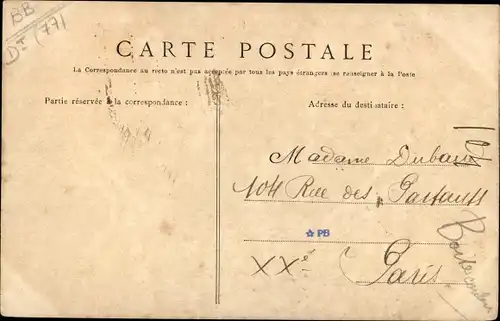 BB
DT (77)
CARTE POSTALE
La Correspondance au recto n'est pas acceptée par tous les pays étrangers (se renseigner à la Poste
Partie réservée à la correspondance :
Adresse du destinataire :
Madame
104 Rue des
PB
XXe
Paris